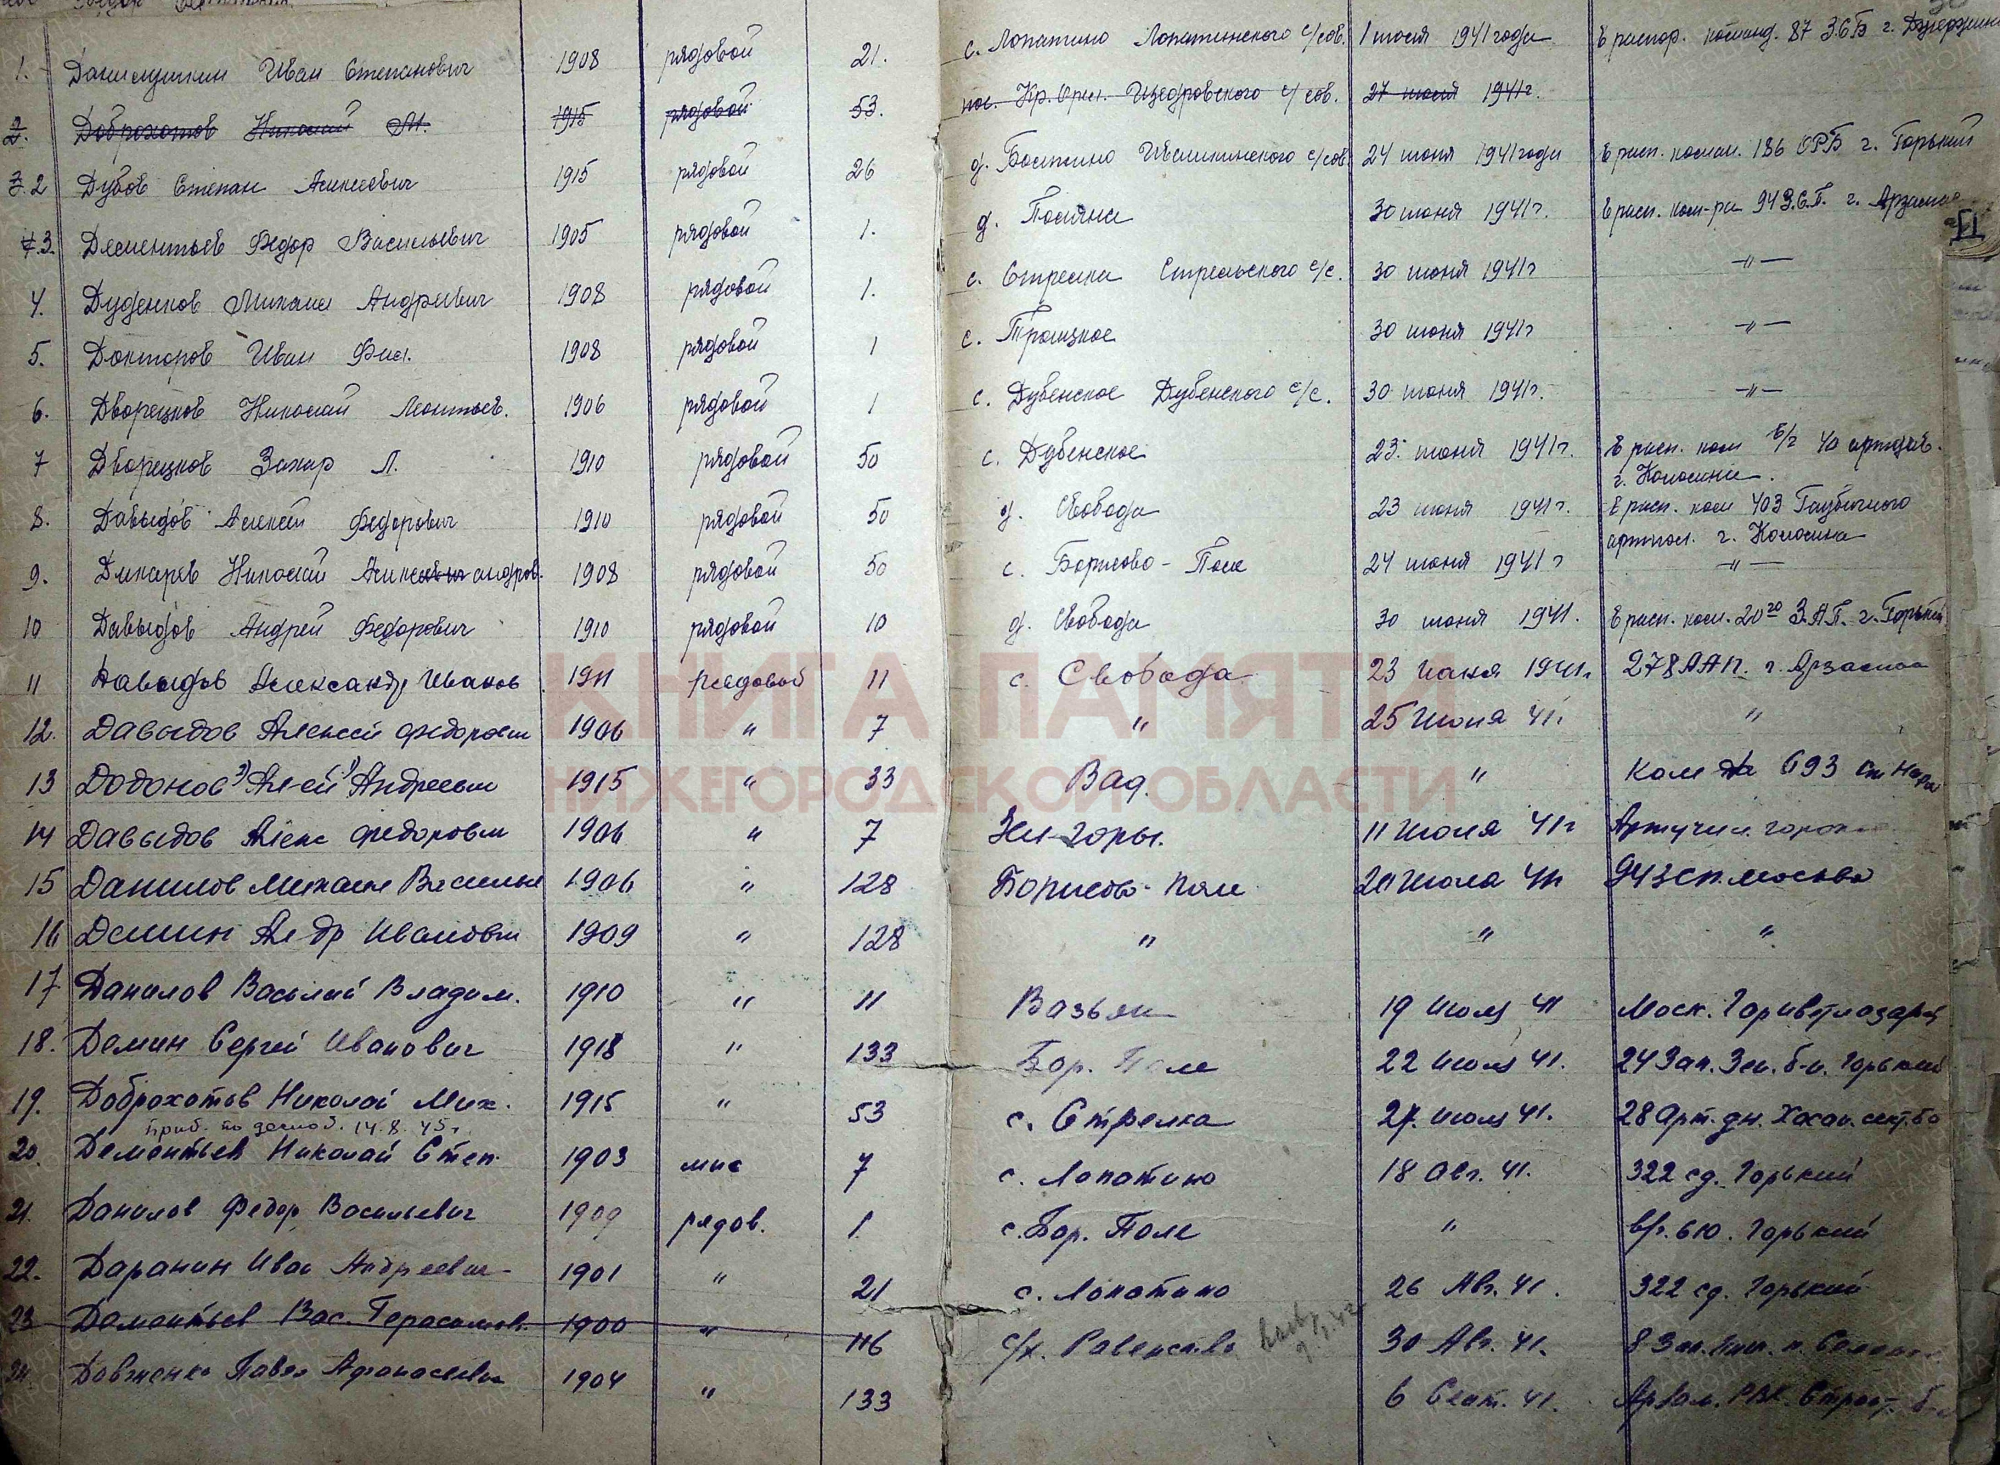 1. Данилушкин Иван Степанович 1908 рядовой 21. с. Лопатино Лопатинского с/сов. 1 июля 1941 года В распор. команд. 87 З.С.Б г.
2. Доброхотов Николай М. 1915 рядовой 53. пос. с/сов. 27 июля 1941г.
3. 2 Дубов Степан Алексеевич 1915 рядовой 26 д. с/сов 24 июня 1941 года В расп. коман. 186 ОРБ г. Горький
4. 3. Дементьев Федор Васильевич 1905 рядовой 1. д. Поляна 30 июня 1941г. В расп. ком-ра 94 З.С.П. г. Арзамас
4. Дуденков Михаил Андреевич 1908 рядовой 1. с. Стрелка Стрельского с/с. 30 июня 1941г -"-
5. Докторов Иван Фил. 1908 рядовой 1 с. Троицкое 30 июня 1941г -"-
6. Дворецков Николай Леонтьев. 1906 рядовой 1 с. Дубенское Дубенского с/с. 30 июня 1941г. -"-
7 Дворецков Захар Л. 1910 рядовой 50 с. Дубенское 23 июня 1941г. В расп. ком в/ч
г. Коломна.
8. Давыдов Алексей Федорович 1910 рядовой 50 д. Свобода 23 июня 1941г. В расп. ком 403 Гаубичного
артпол. г. Коломна
9. Дикарев Николай Александров. 1908 рядовой 50 с. Борисово-Поле 24 июня 1941г -"-
10 Давыдов Андрей Федорович 1910 рядовой 10 д. Свобода 30 июня 1941. В расп. ком. 20го З.А.П. г. Горький
11 Давыдов Александр Иванов 1911 рядовой 11 с. Свобода 23 июня 1941г 278 ААП. г. Арзамас
КНИГА ПАМЯТИ
12. Давыдов Алексей Федорович 1906 " 7 " 25 Июня 41г "
13 Додонов Ал-ей Андреевич 1915 " 33 Вад. " Ком 693
НИЖЕГОРОДСКОЙ ОБЛАСТИ
14 Давыдов Алекс Федорович 1906 " 7 Зел-Горы. 11 Июля 41г
15 Данилов Михаил Василье 1906 " 128 Борисово-Поле 20 Июля 41г 943 сп. Москва
16 Демин Ал-др Иванович 1909 " 128 " " "
17 Данилов Василий Владим. 1910 " 11 Вазьян 19 Июля 41
18. Демин Сергей Иванович 1918 " 133 Бор. Поле 22 Июля 41. 24 Зап. Зен. б-н. Горький
19. Доброхотов Николай Мих. 1915 " 53 с. Стрелка 27. Июля 41. 28 Арт. дн. Хасан.
приб. по демоб. 14.8.45г.
20. Дементьев Николай Степ. 1903 мнс 7 с. Лопатино 18 Авг. 41. 322 сд. Горький
21. Данилов Федор Васильевич 1909 рядов. 1 с. Бор. Поле " Горький
22. Даранин Иван Андреевич 1901 " 21 с. Лопатино 26 Авг. 41. 322 сд. Горький
23 Дементьев Вас. Герасимов. 1900 " 116 с/х. Равенство 30 Авг. 41. 8 Зап.
24. Довженко Павел Афанасьевич 1904 " 133 6 Сент. 41.